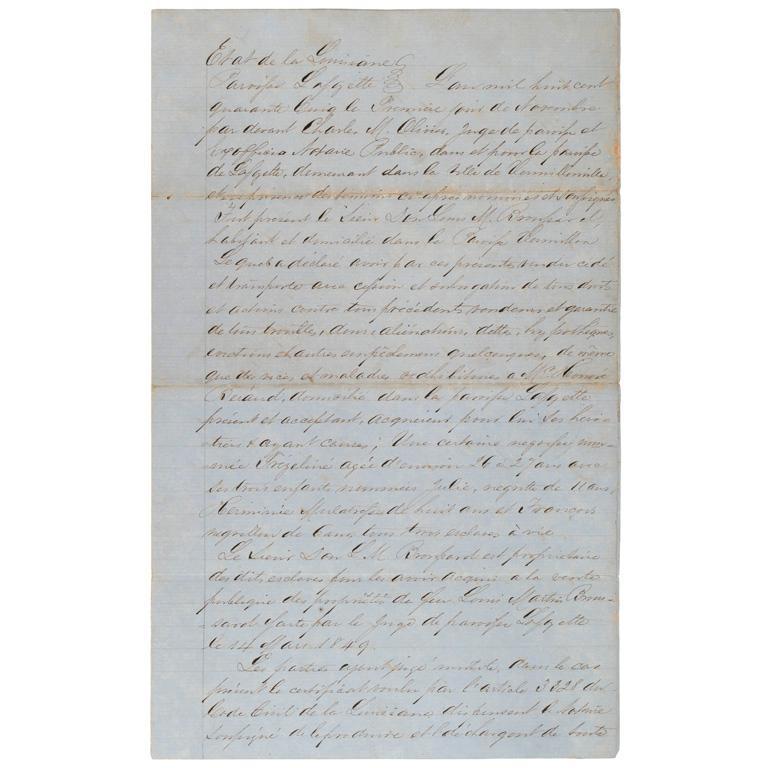 Etat de la Louisiane
Paroisse Lafayette L'an mil huit cent
quarante Cinq le Premier jour de Novembre
par devant Charles M. Olivier, Juge de paroisse et
Exofficio Notaire Public, dans et pour la paroisse
de Lafayette, demeurant dans la ville de Vermillonville
et en presence des temoins ci après nommés et soussignés
Fut présent le Sieur Don Louis M. Broussard
habitant et domicilié dans la Paroisse Vermillon
Lequel a déclaré avoir par ces présentes vendu cédé
et transporté avec cession et subrogation de tous droits
et actions contre tous précédents vendeurs et garantie
de tous troubles, dons, aliénations, dettes, hypothèques,
evictions et autres empêchemens quelconques, de même
que de vices et maladies redhibitoires a Mr.
domicilié dans la paroisse Lafayette
présent et acceptant, acquereur pour lui ses heri-
tiers & ayant causes; Une certaine negresse nom-
mée agée d'environ 26 à 27 ans avec
ses trois enfants nommées Julie, negrite de 11 ans,
Herminie Mulatresse de huit ans et François
negrillon de 6 ans, tous trois esclaves à vie.
Le Sieur Don L. M. Broussard est propriétaire
des dits esclaves pour les avoir acquis a la vente
publique des propriétés de feu Louis Martin Brous-
sard faite par le Juge de paroisse Lafayette
le 14 Mars 1849.
Les parties ayant jugé inutile dans le cas
présent le certificat voulu par l'article 3328 du
Code Civil de la Louisiane, dispensent le Notaire
soussigné de le produire et le déchargent de toute